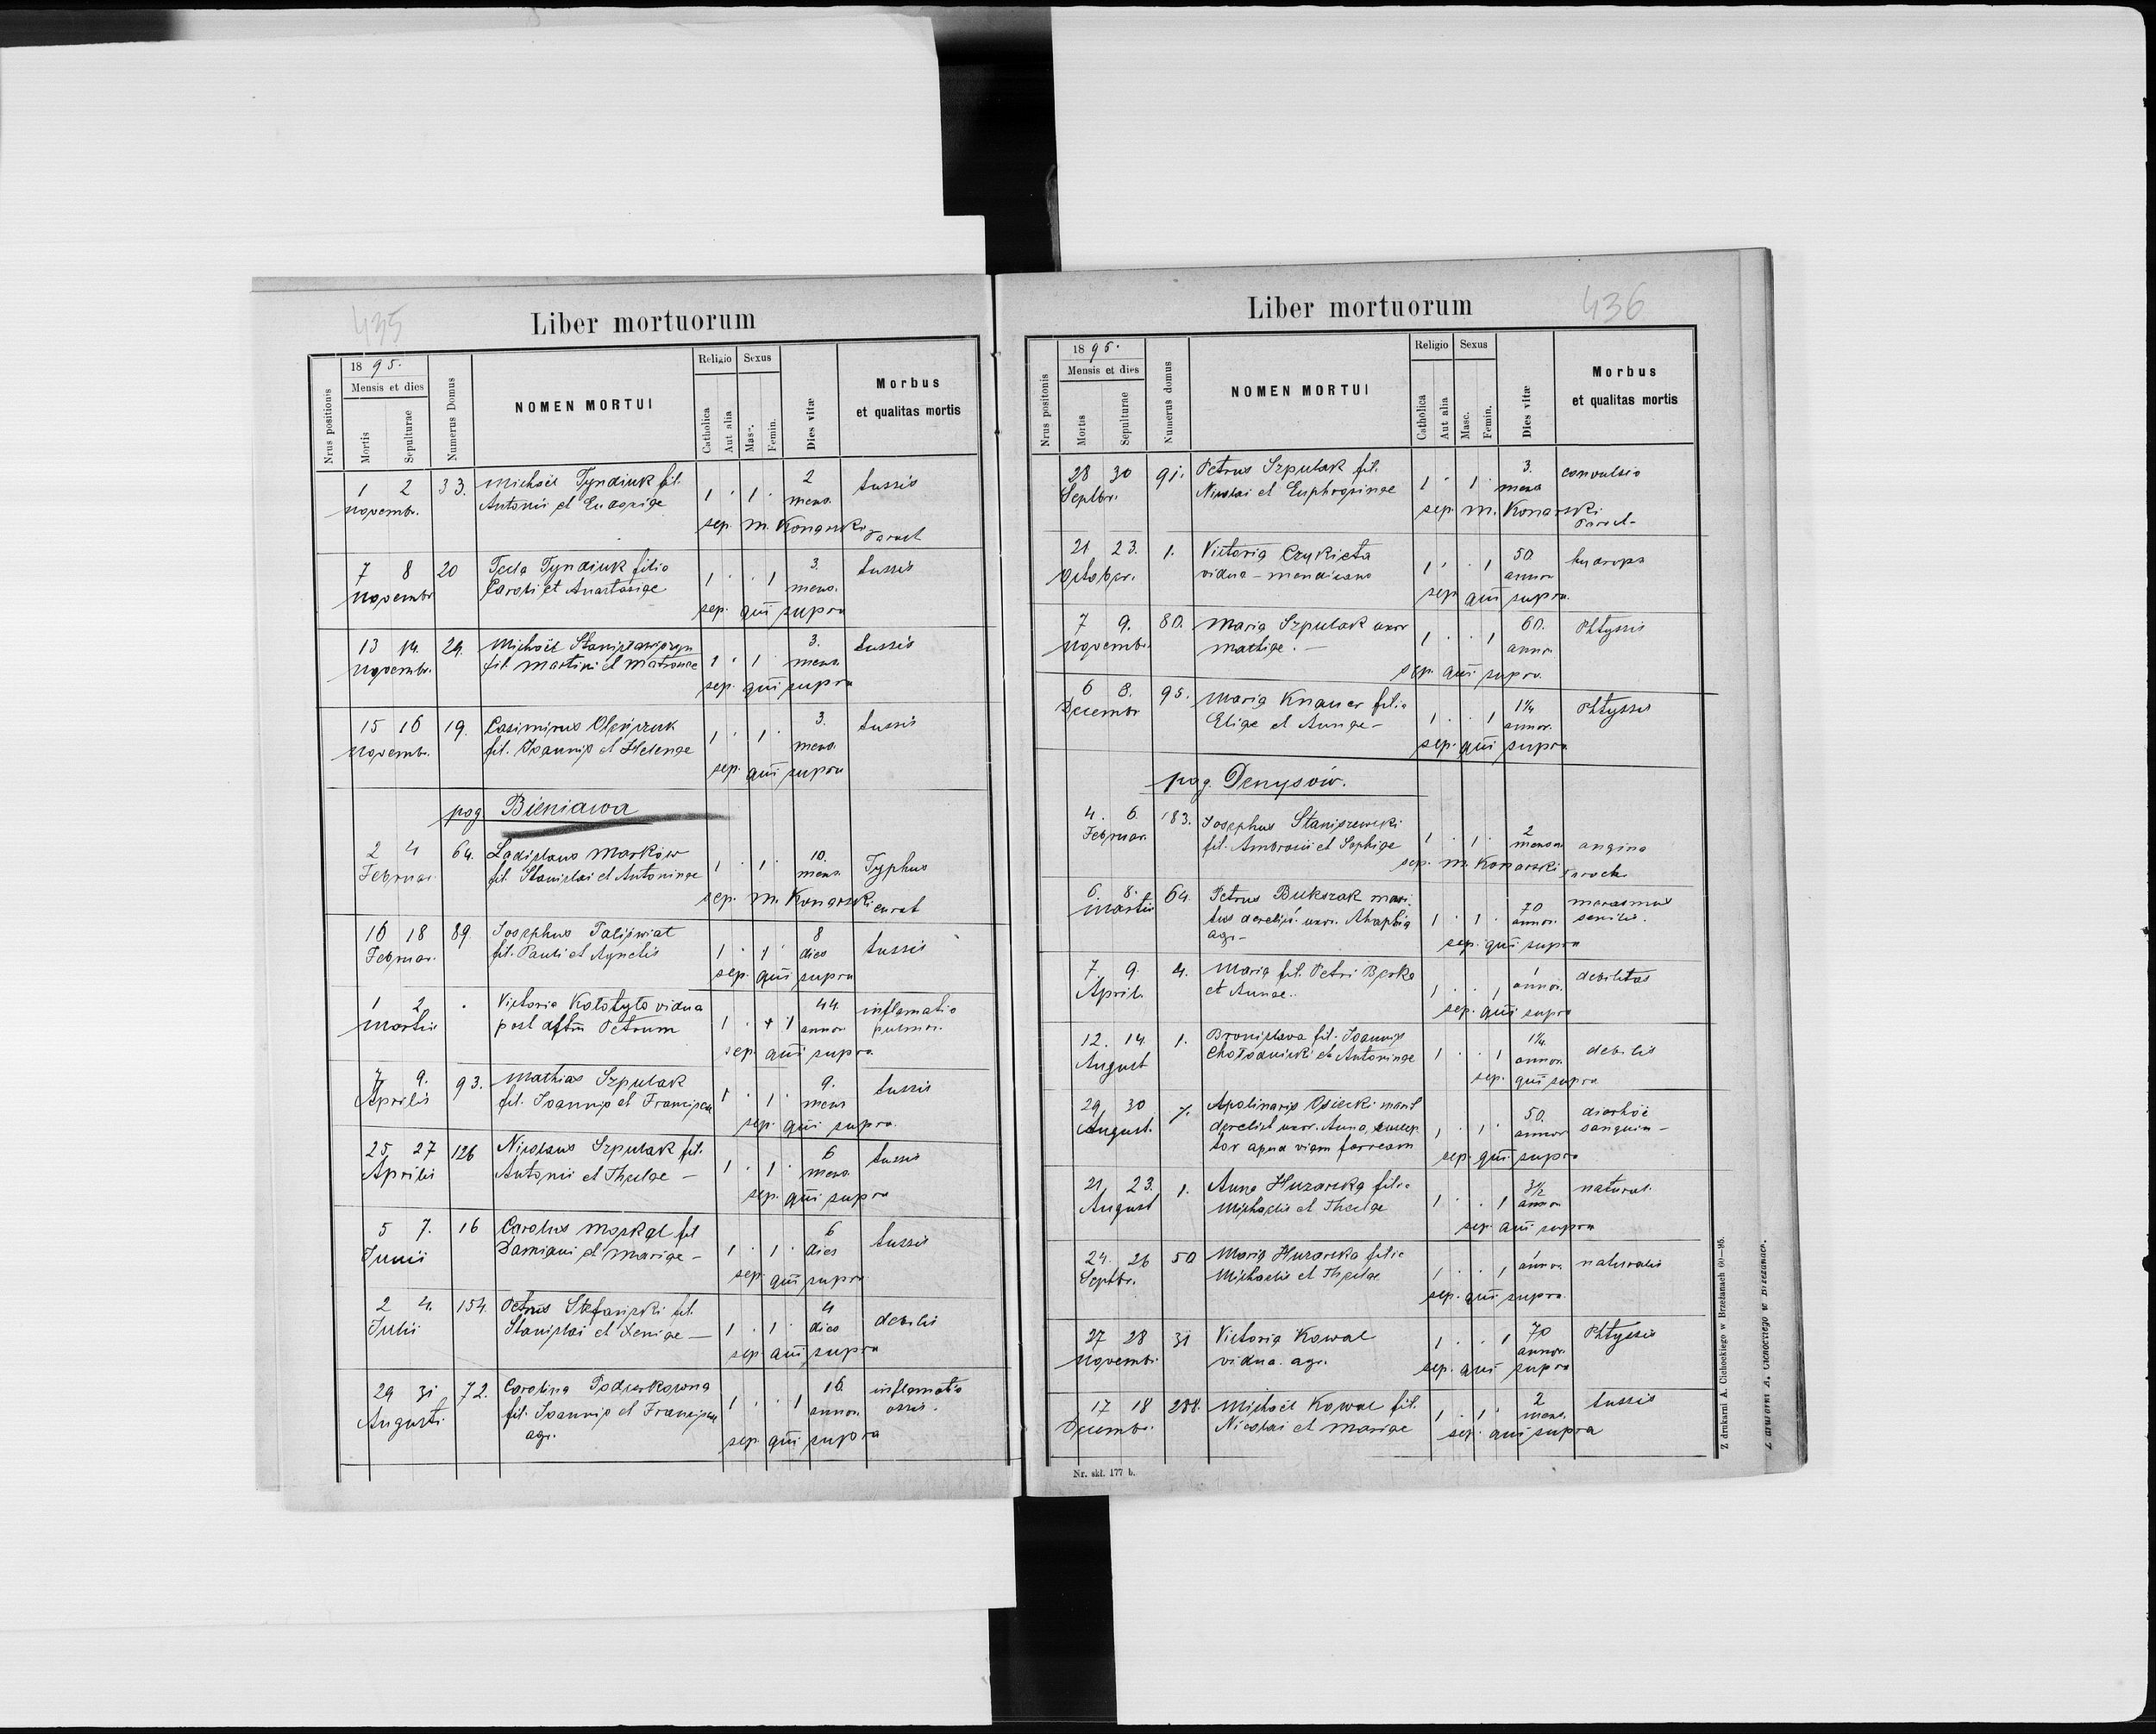 435
Liber mortuorum
Nrus positionis
1895.
Mensis et dies
Mortis
Sepulturae
Numerus Domus
NOMEN MORTUI
Religio
Catholica
Aut alia
Sexus
Masc.
Femin.
Dies vitæ
Morbus
et qualitas mortis
1 2 33. Michaël Tyndiuk fil. 2 tussis
Novembr. Antonii et 1 . 1 . mens.
sep. M. Konarski Paroch
7 8 20 Tecla Tyndiuk filia 3. tussis
Novembr. Caroli et Anastasiae 1 . . 1 mens.
sep. qui supra
13 14. 29. Michaël fil. Martini et Matronae 1 . 1 3. mens. tussis
Novembr.
sep. qui supra
15 16 19. Casimirus 3. tussis
Novembr. fil. Joannis et Helenae 1 . 1 . mens.
sep. qui supra
pag. Bieniawa
2 4 64. Ladislaus Markow 10. Typhus
Februar. fil. Stanislai et Antoninae 1 . 1 . mens.
sep. M. Konarski curat
16 18 89. Josephus 8 tussis
Februar. fil. Pauli et Agnetis 1 . 1 . dies
sep. qui supra
1 2 . Victoria Kołotyło vidua 44. inflamatio
Martii post Petrum 1 . 1 annor pulmon.
sep. qui supra
7 9. 93. Mathias Szpulak 9. tussis
Aprilis fil. Joannis et 1 . 1 . mens
sep. qui supra.
25 27 126 Nicolaus Szpulak fil. 6 tussis
Aprilis Antonii et Theclae — 1 . 1 . mens.
sep. qui supra
5 7. 16 Carolus Moskal fil 6 tussis
Junii Damiani et Mariae — 1 . 1 . dies
sep. qui supra
2 4. 154. Petrus Stefański fil. 4 debilis
Julii Stanislai et Xeniae — 1 . 1 . dies
sep qui supra
29 31 72. Carolina 16 inflamatio
Augusti fil. Joannis et 1 . . 1 annor. ossis.
agr.
sep. qui supra
Liber mortuorum
436
Nrus positonis
1895.
Mensis et dies
Mortas
Sepulturae
Numerus domus
NOMEN MORTUI
Religio
Catholica
Aut alia
Sexus
Masc.
Femin.
Dies vitæ
Morbus
et qualitas mortis
28 30 91. Petrus Szpulak fil. 3. convulsio
Septbr. Nicolai et Euphrosinae 1 . 1 . mens
sep. M. Konarski
Paroch
21 23. 1. Victoria Czykieta 50 hydrops
Octobr. vidua – 1 . . 1 annor
sep qui supra.
7 9. 80. Maria Szpulak uxor 60. Phtyssis
Novembr. 1 . . 1 annor
sep. qui supra.
6 8. 95. Maria Knauer filia 1¼ Phtyssis
Decembr Eliae et Annae – 1 . . 1 annor.
sep. qui supra
pag. Denysów.
4. 6. 183. Josephus Staniszewski 2
Februar. fil. Ambrosii et Sophiae 1 . 1 . mensor angina
sep. M. Konarski Paroch
6. 8. 64. Petrus Bukszak mari- 70 marasmus
Martii tus derelict. uxor. 1 . 1 . annor. senilis.
agr –
sep. qui supra
7 9. 4. Maria fil. Petri 1 debilitas
April. et Annae. 1 . . 1 annor.
sep. qui supra
12. 14. 1. Bronislava fil. Joannis 1¼
August Chołodniski et Antoninae 1 . . 1 annor. debilis
sep. qui supra
29 30 7. Apolinaris Osiecki marit 50. diarhöë
August. derelict uxor. Anna, 1 . 1 . annor sanguin –
apud viam ferream
sep. qui supra
21. 23. 1. Anna Huzarska filia 3½ natural.
August Michaelis et Theclae 1 . . 1 annor
sep. qui supra
24. 26 50 Maria Huzarska filia 1 annor. naturalis
Septbr. Michaelis et Theclae 1 . . 1
sep. qui supra.
27 28 31 Victoria Kowal 1 . . 1 70 Phtyssis
Novembr. vidua. agr. annor.
sep. qui supra
17 18 288. Michaël Kowal fil. 2 tussis
Decembr. Nicolai et Mariae 1 . 1 . mens.
sep. qui supra
Nr. skł. 177 b.
Z drukarni A. Cichockiego w Brzeżanach 60—95.
Z drukarni A. Cichockiego w Brzeżanach.